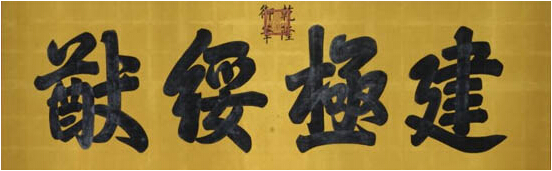 乾隆
御筆
建極綏猷